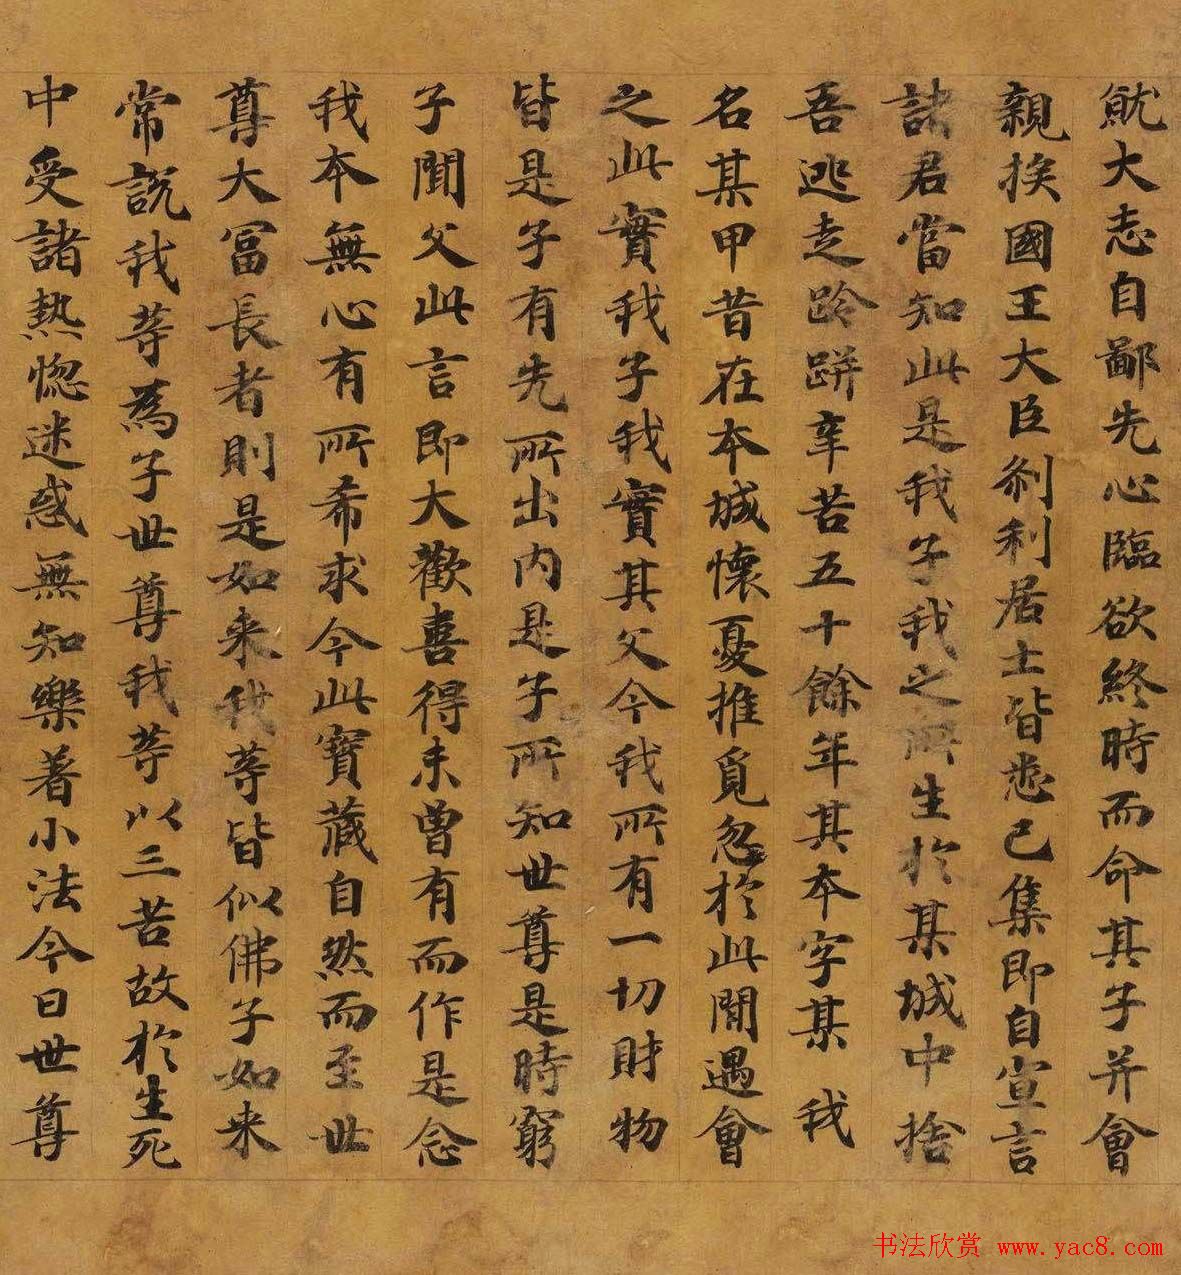 就大志自鄙先心臨欲終時而命其子并會
親挨國王大臣剎利居士皆悉已集即自宣言
諸君當知此是我子我之所生於某城中捨
吾逃走跉跰辛苦五十餘年其本字某我
名某甲昔在本城懷憂推覓忽於此間遇會
之此實我子我實其父今我所有一切財物
皆是子有先所出内是子所知世尊是時窮
子聞父此言即大歡喜得未曾有而作是念
我本無心有所希求今此寶藏自然而至世
尊大冨長者則是如来我等皆似佛子如来
常説我等為子世尊我等以三苦故於生死
中受諸热惚迷惑無知樂著小法今日世尊
书法欣赏 www.yac8.com